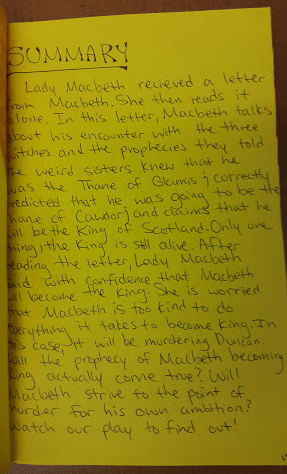 SUMMARY
Lady Macbeth recieved a letter
from Macbeth. She then reads it
alone. In this letter, Macbeth talks
about his encounter with the three
witches and the prophecies they told.
The weird sisters knew that he
was the Thane of Glamis; correctly
predicted that he was going to be the
Thane of Cawdor; and claims that he
will be the King of Scotland-Only one
thing; the King is still alive. After
reading the letter, Lady Macbeth
said with confidence that Macbeth
will become the King. She is worried
that Macbeth is too kind to do
everything it takes to become King. In
this case, it will be murdering Duncan.
Will the prophecy of Macbeth becoming
King actually come true? Will
Macbeth strive to the point of
murder for his own ambition?
Watch our play to find out!